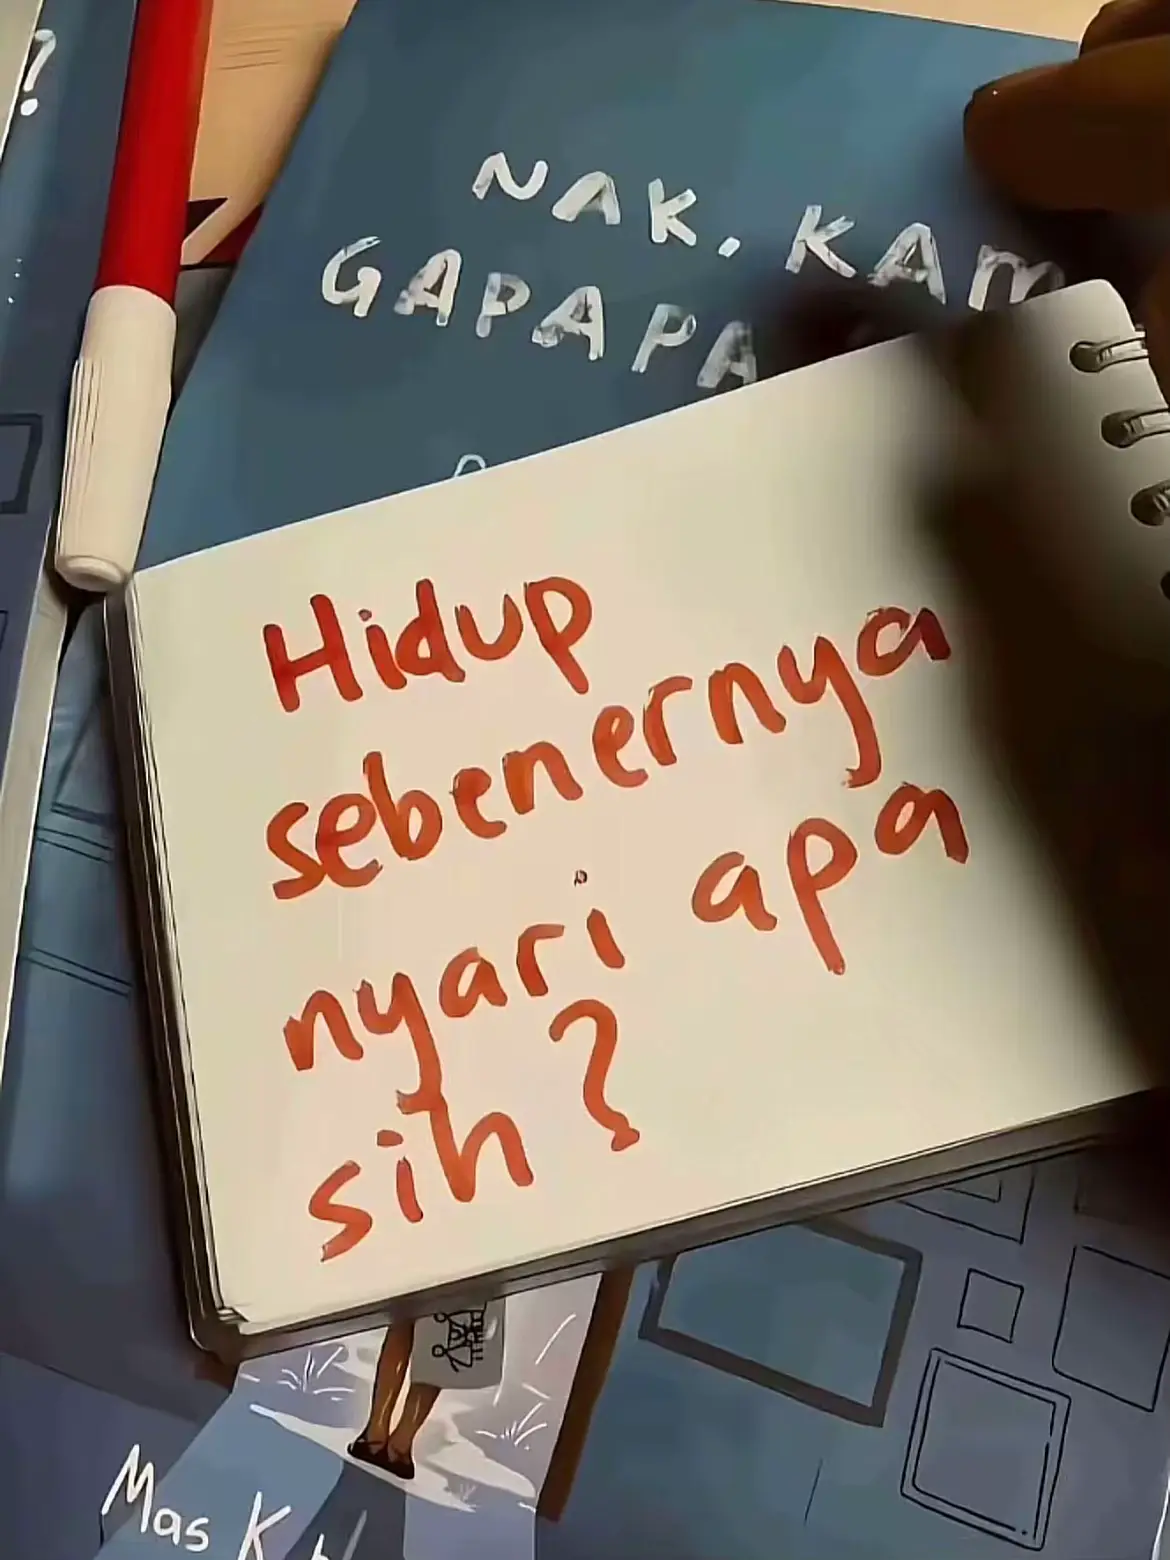 ?
NAK, KAM
GAPAPA
Hidup
sebenernya
nyari apa
sih?
Mas